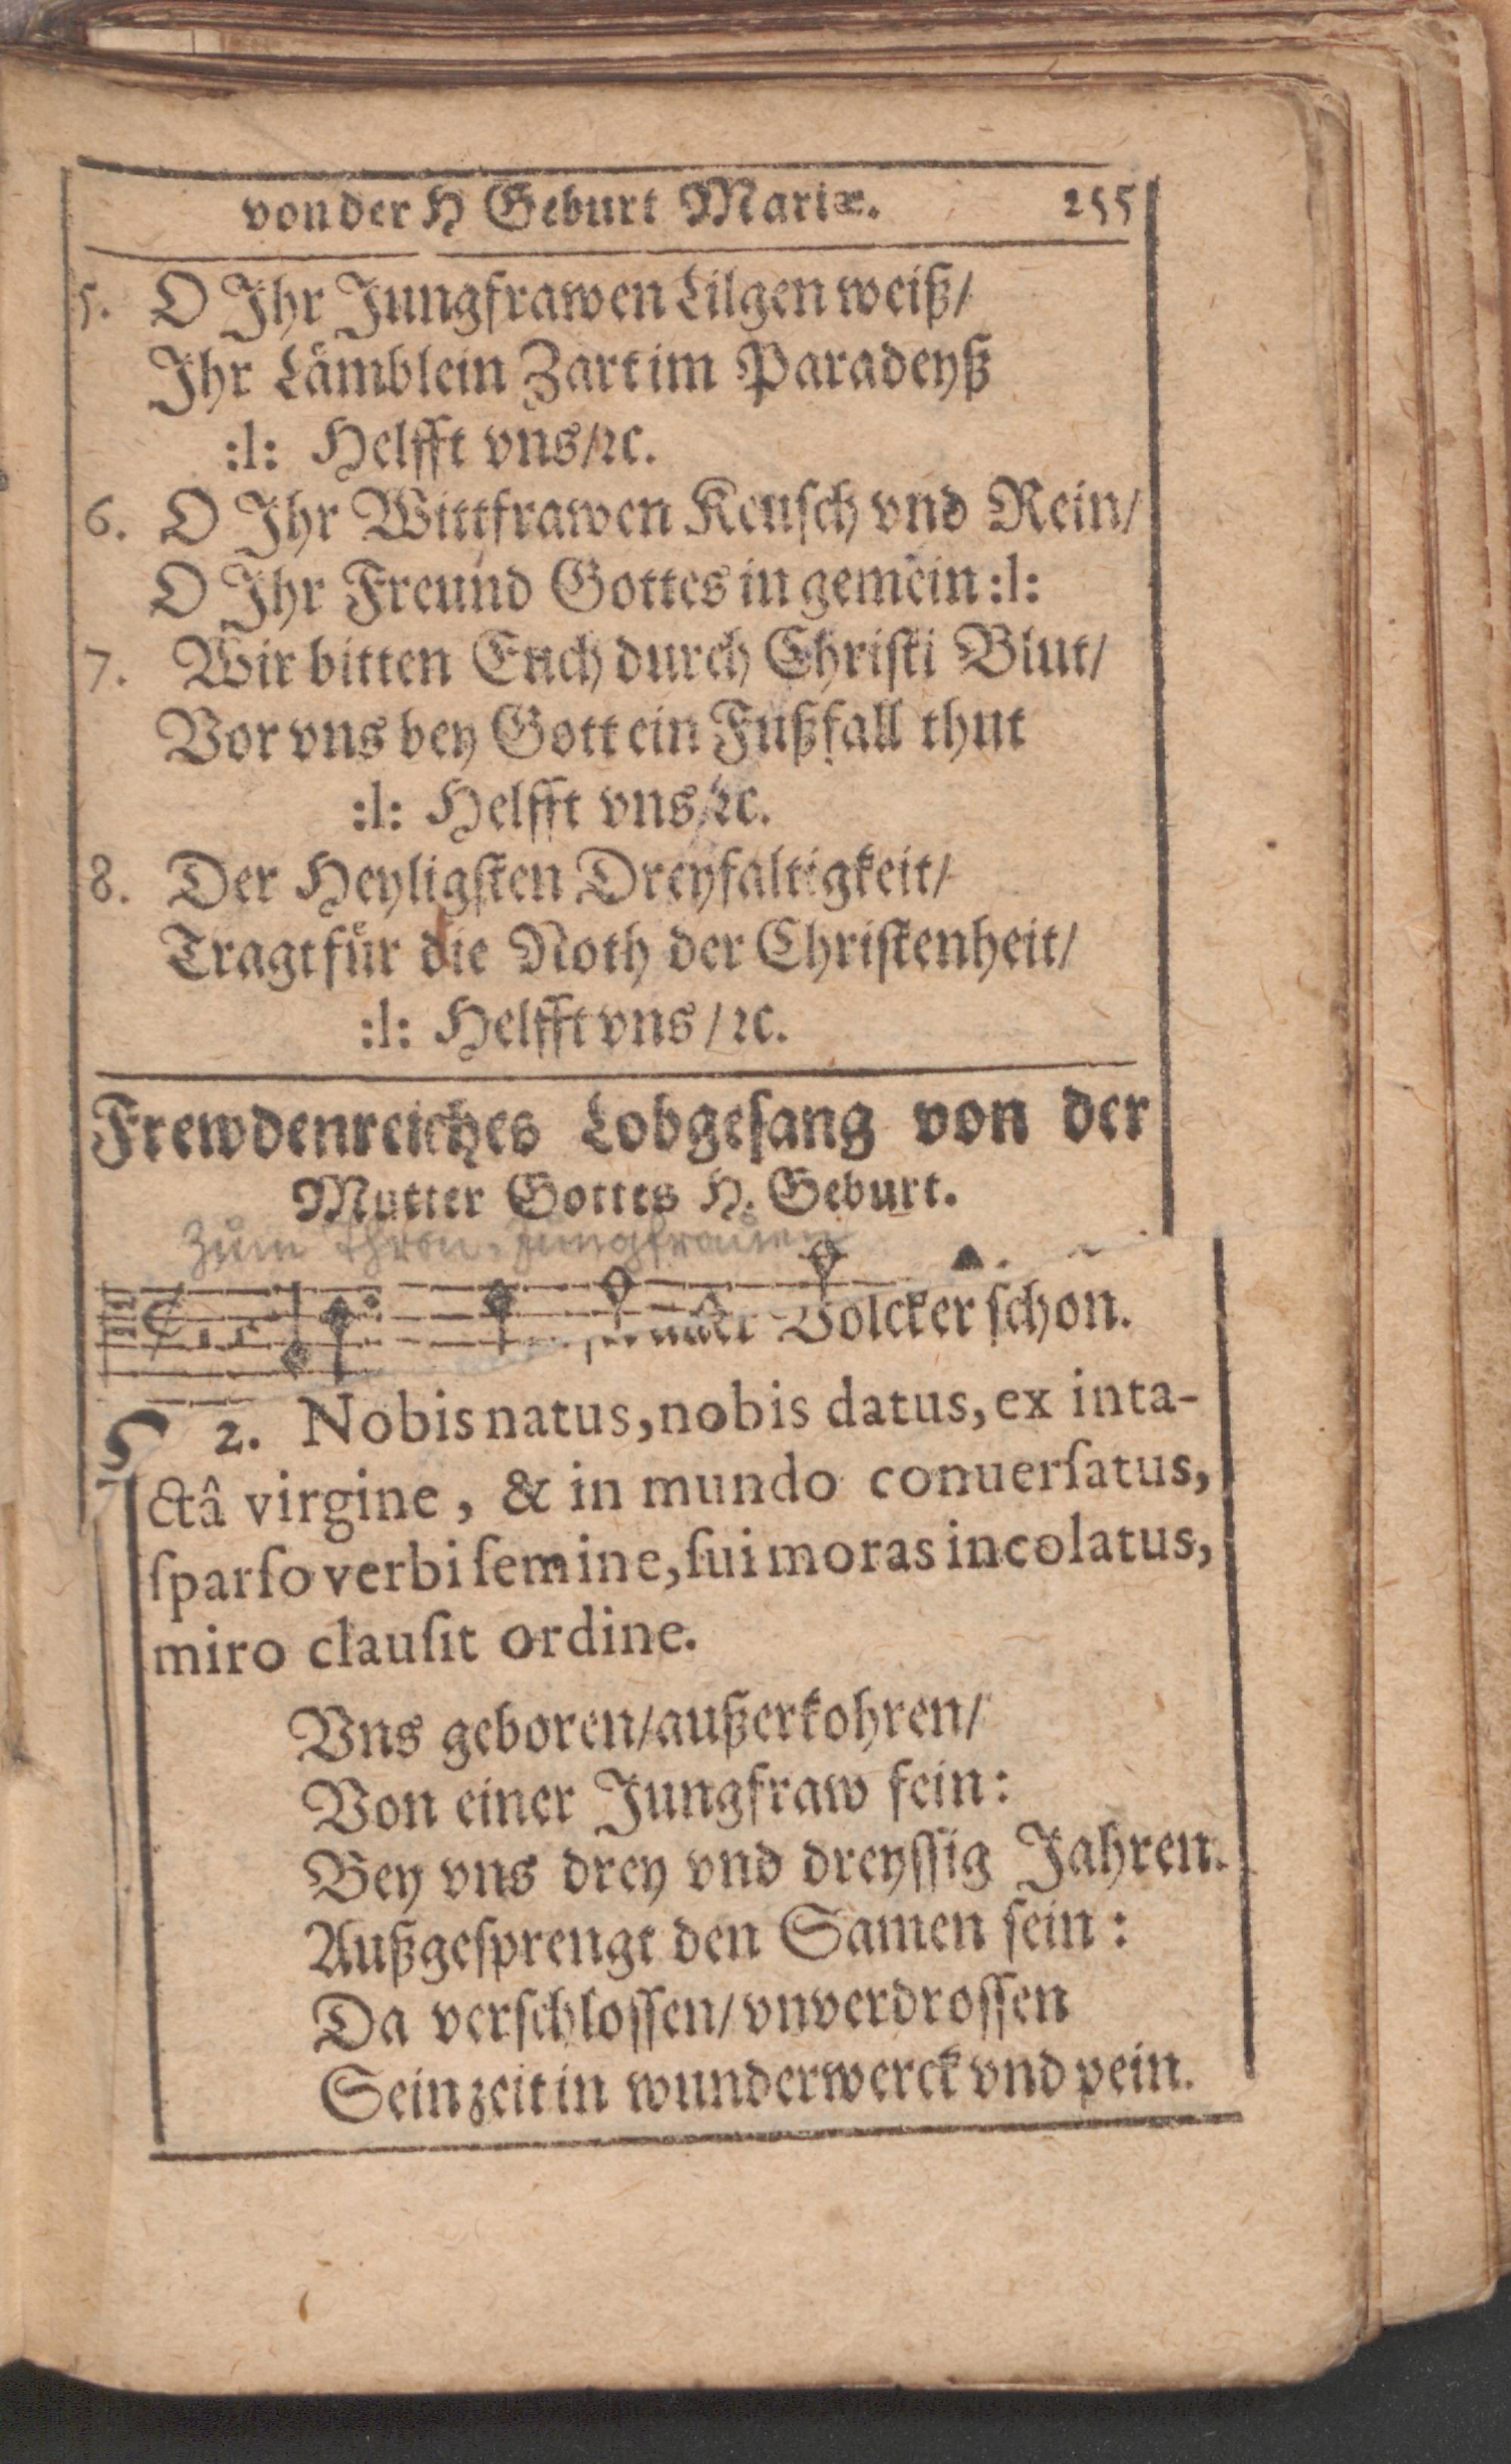 von der H Geburt Mariæ. 255
5. O Ihr Jungfrawen Lilgen weiß/
Ihr Lämblein Zart im Paradeyß
:l: Helfft vns/ꝛc.
6. O Ihr Wittfrawen Keuſch vnd Rein/
O Ihr Freund Gottes in gemein :l:
7. Wir bitten Euch durch Chriſti Blut/
Vor vns bey Gott ein Fußfall thut
:l: Helfft vns/ꝛc.
8. Der Heyligſten Dreyfaltigkeit/
Tragt für die Noth der Chriſtenheit/
:l: Helfft vns/ꝛc.
Frewdenreiches Lobgeſang von der
Mutter Gottes H. Geburt.
Zum Thron. Jungfrauen
Völcker ſchon.
2. Nobis natus, nobis datus, ex inta-
ctâ virgine, & in mundo conuerſatus,
ſparſo verbi ſemine, ſui moras incolatus,
miro clauſit ordine.
Vns geboren/außerkohren/
Von einer Jungfraw fein:
Bey vns drey vnd dreyſſig Jahren.
Außgeſprengt den Samen ſein:
Da verſchloſſen/vnverdroſſen
Sein zeit in wunderwerck vnd pein.